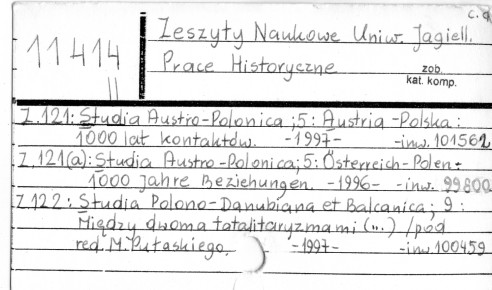 c.d
Zeszyty Naukowe Uniw. Jagiell.
11414
II
Prace Historyczne
zob.
kat. komp.
Z.121: Studia Austro-Polonica ; 5: Austria -Polska :
1000 lat kontaktów. -1997- -inw. 101562
Z.121(a): Studia Austro-Polonica; 5: Österreich-Polen :
1000 Jahre Beziehungen. -1996- -inw. 99800
Z.122 : Studia Polono-Danubiana et Balcanica ; 9 :
Między dwoma totalitaryzmami (...) /pod
red. M. Pułaskiego. -1997- -inw. 100459